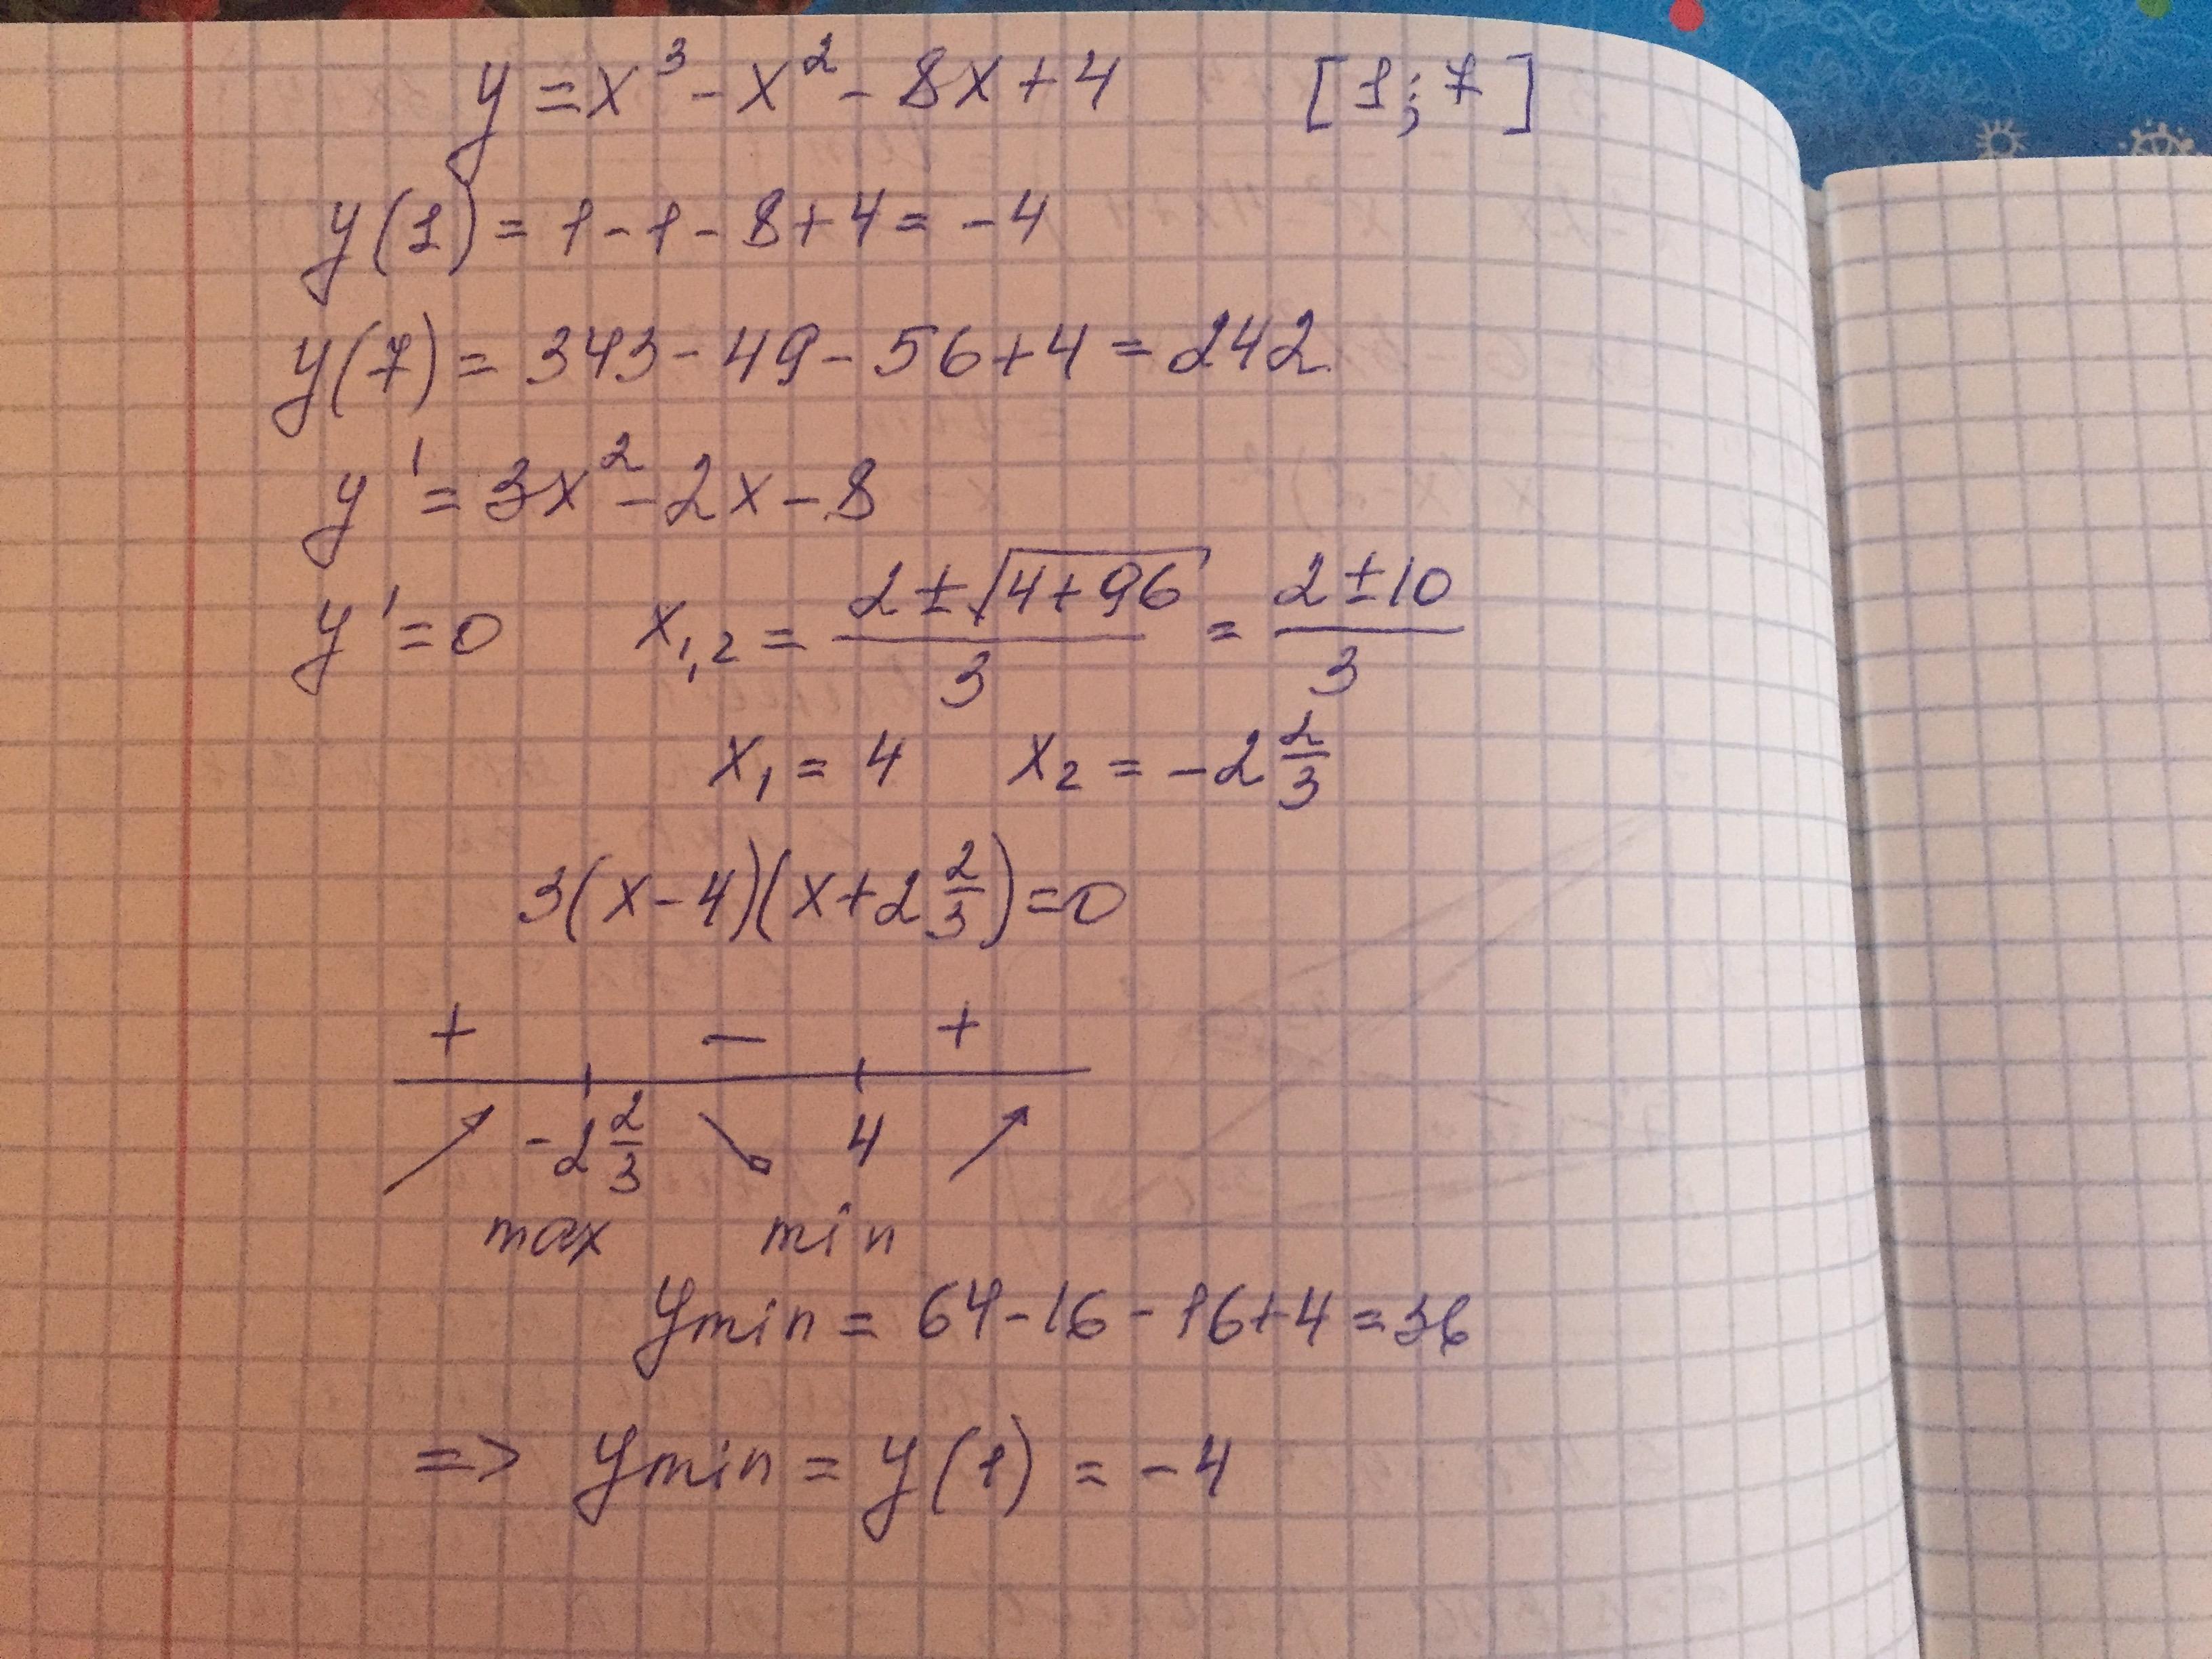 y = x³ - x² - 8x + 4 [1; 7]
y(1) = 1 - 1 - 8 + 4 = -4
y(7) = 343 - 49 - 56 + 4 = 242
y' = 3x² - 2x - 8
y' = 0 x₁,₂ = (2 ± √(4 + 96))/3 = (2 ± 10)/3
x₁ = 4 x₂ = -2 2/3
3(x - 4)(x + 2 2/3) = 0
+ - +
-2 2/3 4
max min
ymin = 64 - 16 - 16 + 4 = 36
=> ymin = y(1) = -4